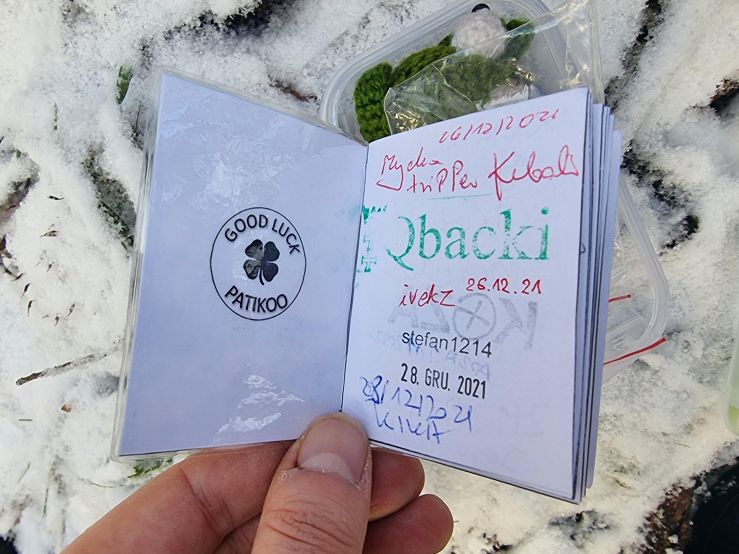 GOOD LUCK
PATIKOO
26/12/2021
Mycha
tripper Kebab
Qbacki
ivekz 26.12.21
stefan1214
28. GRU. 2021
28/12/2021
KIKIA